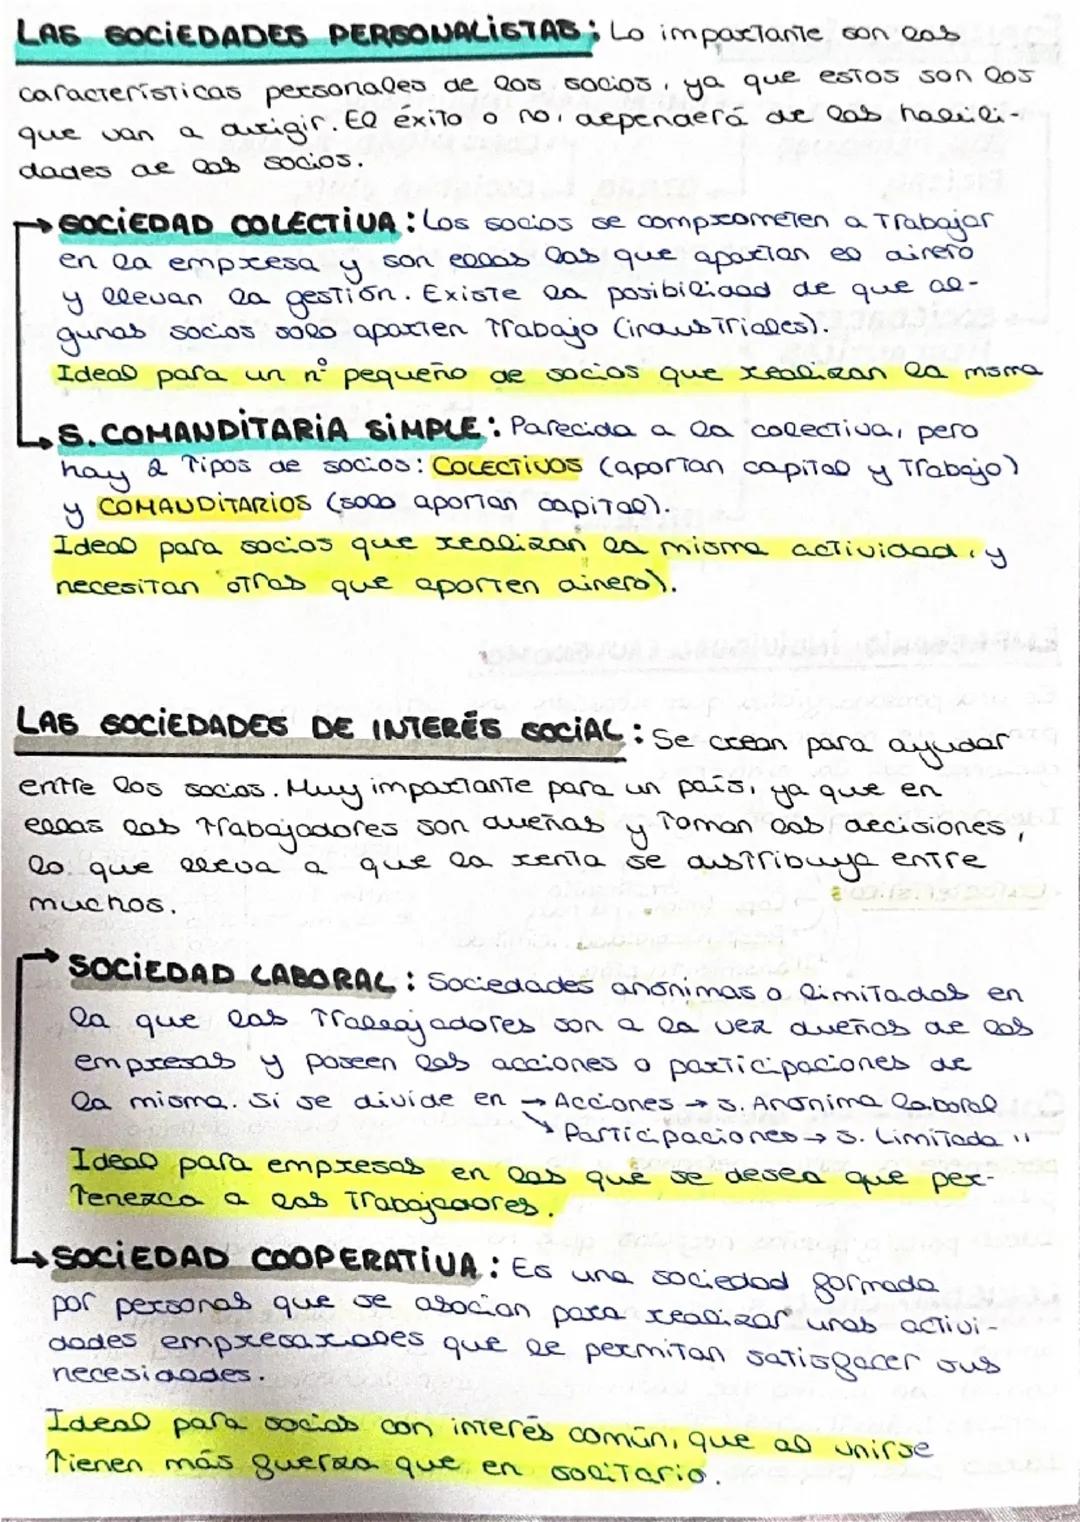 LAS SOCIEDADES PERSONALISTAS: Lo importante son las
características personales de los socios, ya que estos son los
que van a dirigir. El éxito o no, dependerá de las habili-
dades de los socios.
→ SOCIEDAD COLECTIVA: Los socios se comprometen a trabajar
en la empresa y son ellos los que aportan el dinero
y llevan la gestión. Existe la posibilidad de que al-
gunos socios solo aporten trabajo (industriales).
Ideal para un nº pequeño de socios que realizan la msma
→ S. COMANDITARIA SIMPLE: Parecida a la colectiva, pero
hay 2 tipos de socios: COLECTIVOS (aportan capital y trabajo)
y COMANDITARIOS (solo aportan capital).
Ideal para socios que realizan la misma actividad, y
necesitan otros que aporten dinero).
LAS SOCIEDADES DE INTERÉS SOCIAL: Se crean para ayudar
entre los socios. Muy importante para un país, ya que en
ellas los trabajadores son dueños y toman las decisiones,
lo que lleva a que la renta se distribuya entre
muchos.
→ SOCIEDAD LABORAL: Sociedades anónimas o limitadas en
la que los trabajadores son a la vez dueños de las
empresas y poseen las acciones o participaciones de
la misma. Si se divide en → Acciones → S. Anónima laboral
↘ Participaciones → S. Limitada "
Ideal para empresas en las que se desea que per-
tenezca a los trabajadores.
→ SOCIEDAD COOPERATIVA: Es una sociedad formada
por personas que se asocian para realizar unas activi-
dades empresariales que le permitan satisfacer sus
necesidades.
Ideal para socios con interés común, que al unirse
tienen más fuerza que en solitario.